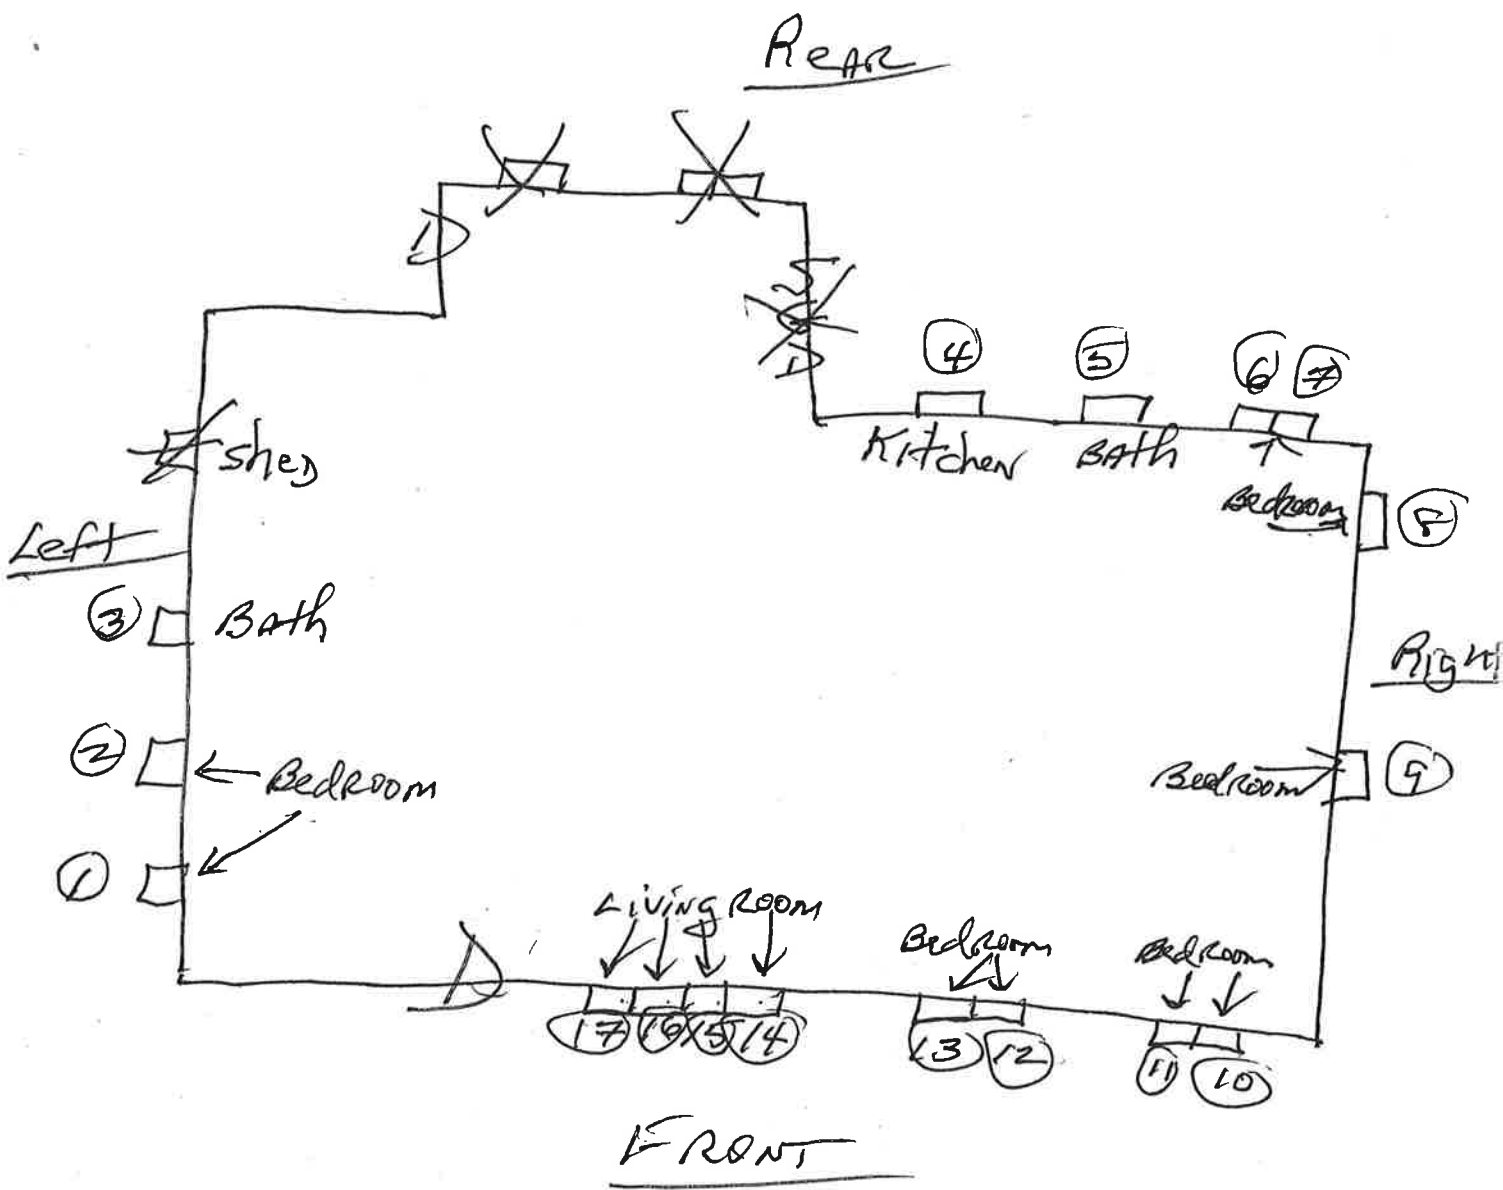 Rear
D
D
4 5 6 7
Kitchen Bath
Bedroom 8
Shed
Left
3 Bath
Right
2 Bedroom
Bedroom 9
1
Living Room
Bedroom
Bedroom
D
17 16 15 14
13 12
11 10
Front